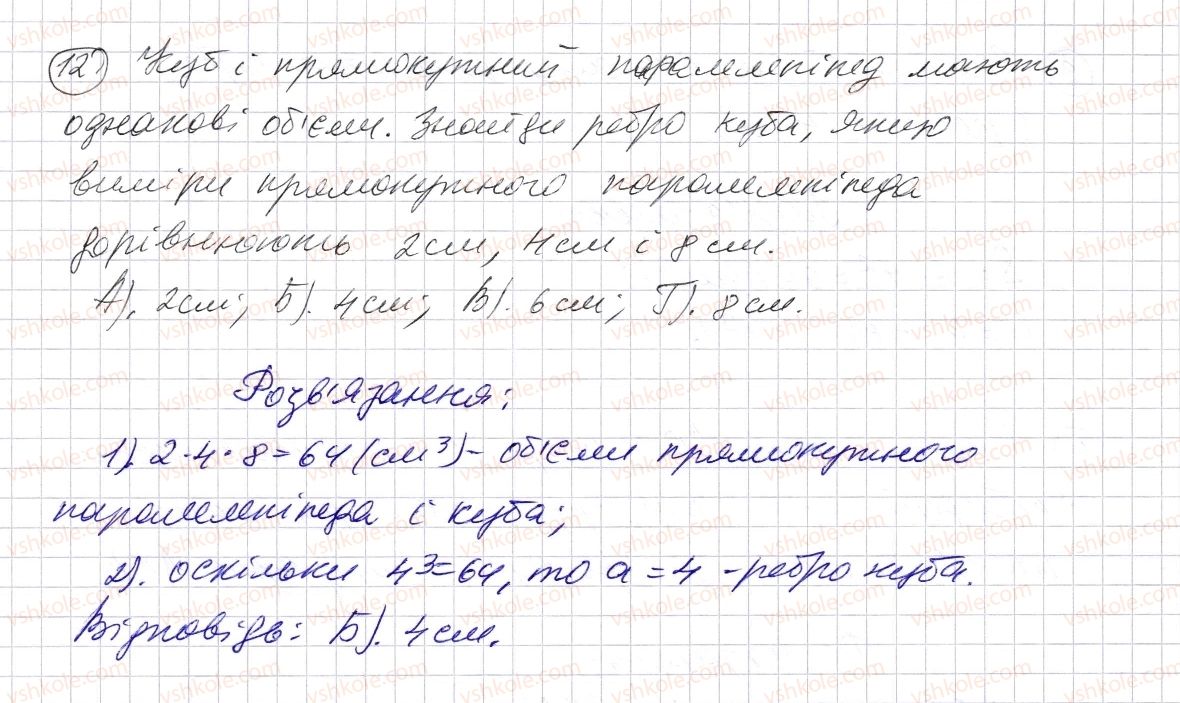 12) Куб і прямокутний паралелепіпед мають
однакові об'єми. Знайди ребро куба, якщо
виміри прямокутного паралелепіпеда
дорівнюють 2 см, 4 см і 8 см.
А). 2 см; Б). 4 см; В). 6 см; Г). 8 см.
Розв'язання:
1). 2 · 4 · 8 = 64 (см³) - об'єми прямокутного
паралелепіпеда і куба;
2). оскільки 4³ = 64, то а = 4 - ребро куба.
Відповідь: Б). 4 см.